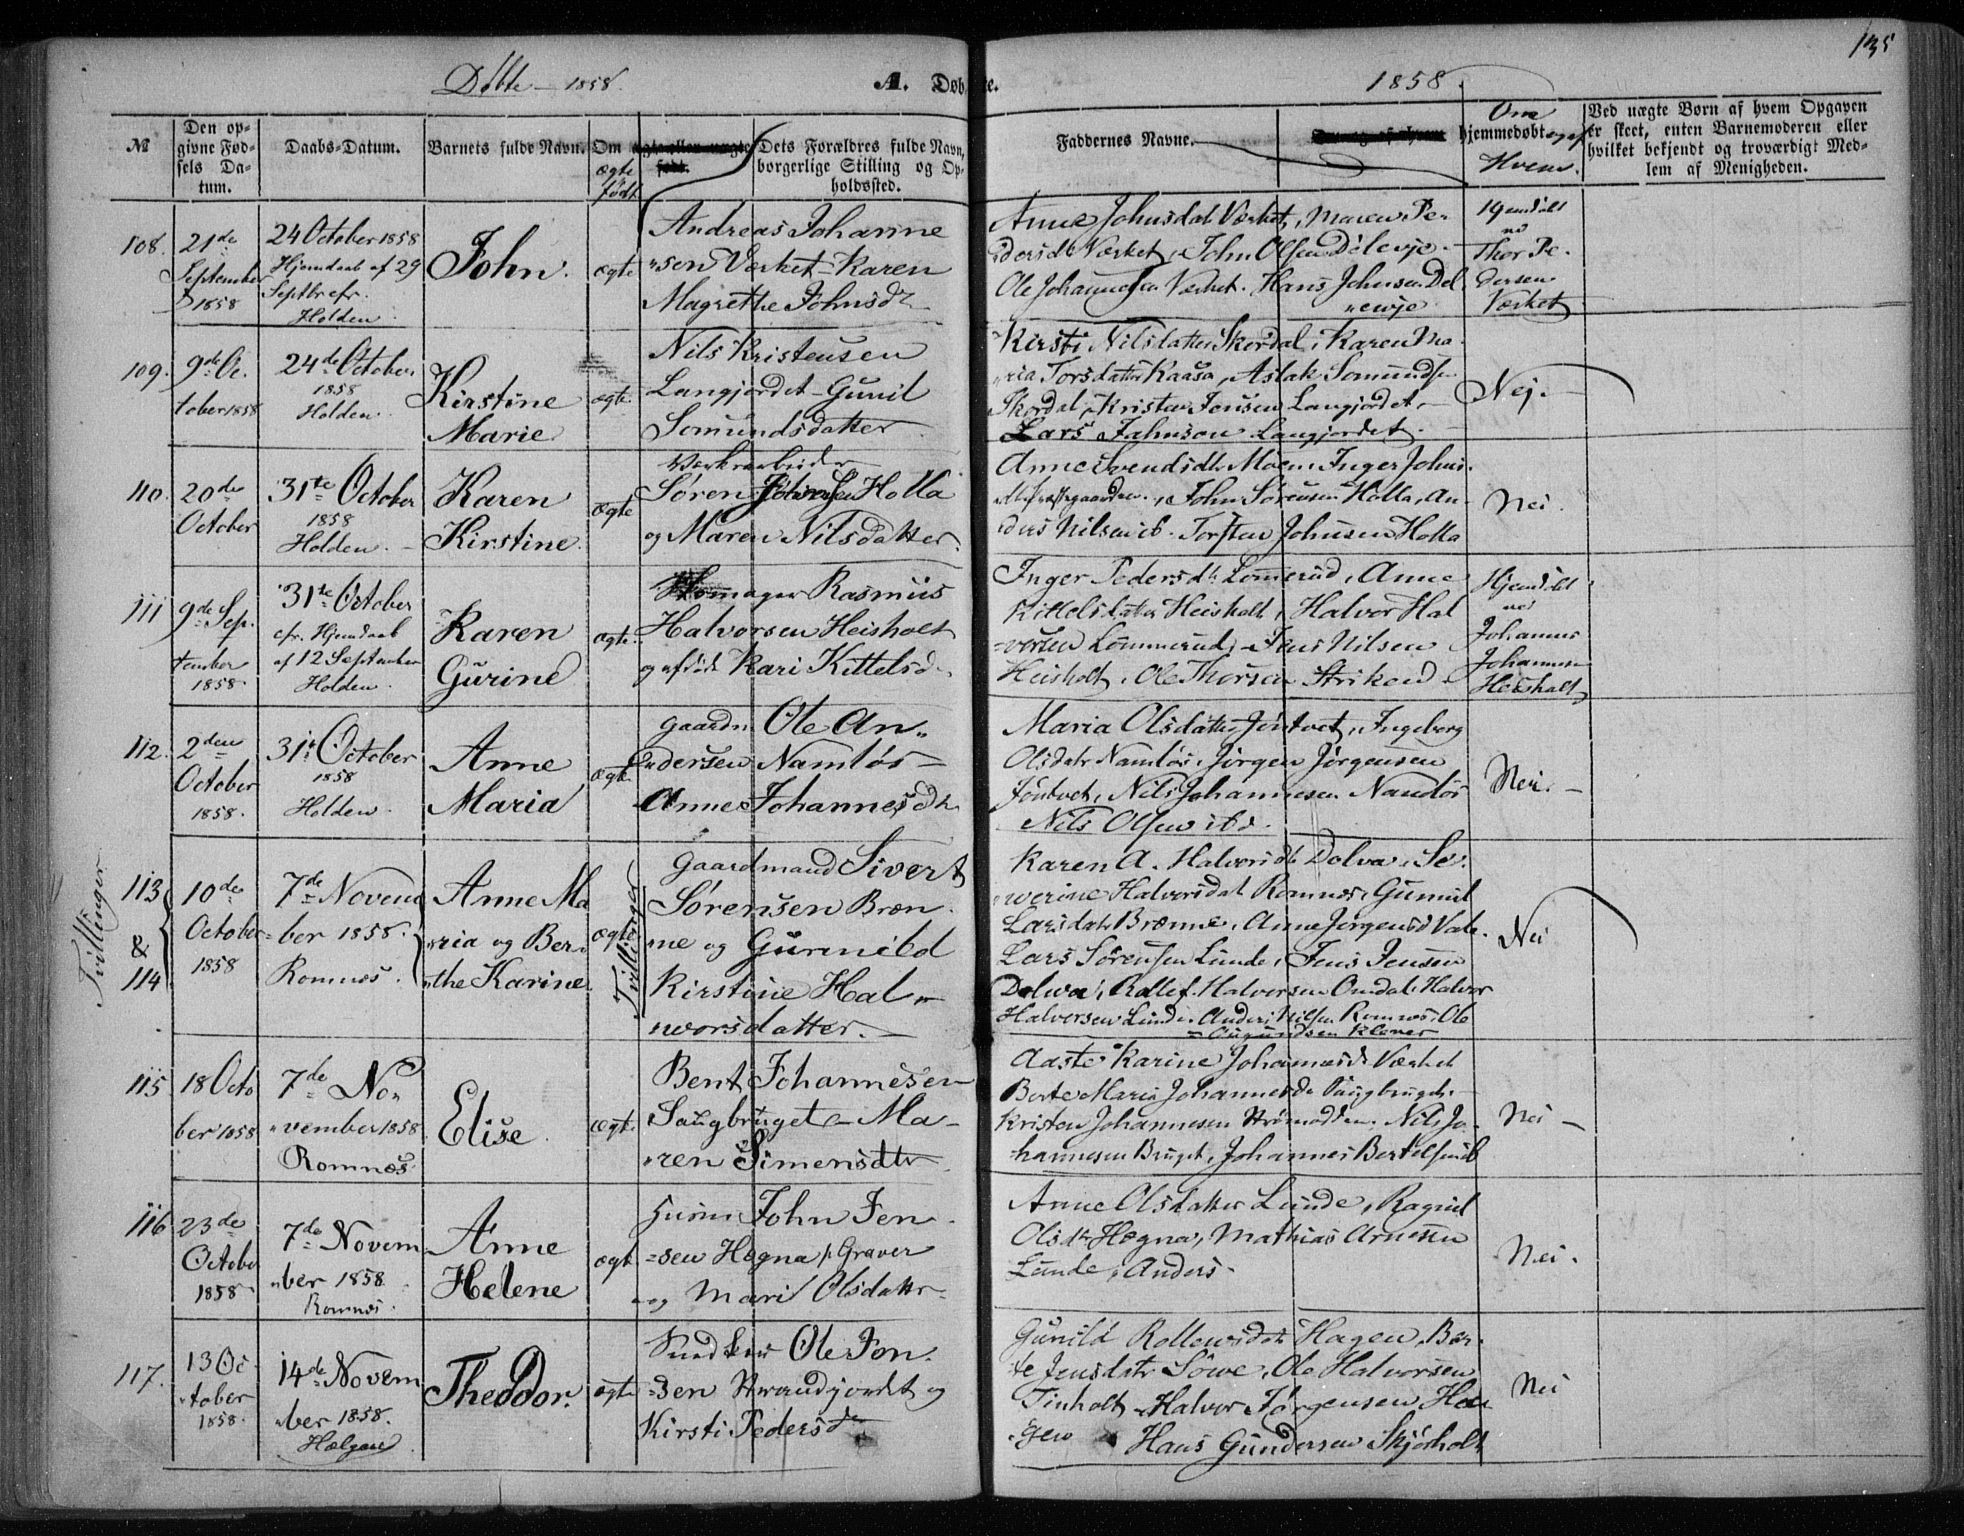 135
Døbte 1858.
A. Døbte.
1858.
№
Den opgivne Fødsels Datum.
Daabs-Datum.
Barnets fulde Navn.
Om ægte født
Dets Forældres fulde Navn, borgerlige Stilling og Opholdssted.
Faddernes Navne.
Om hjemmedøbt og af Hvem.
Ved uægte Børn af hvem Opgaven er skeet, enten Barnemoderen eller hvilket bekjendt og troværdigt Medlem af Menigheden.
108.
21de September 1858
24 October 1858
Hjemdaab af 29
Septbr cfr.
Holden
John.
ægte
Andreas Johanne
"sen Værket - Karen
Magrethe Johnsdr
Anne Johnsdatr Værket, Maren Pe
dersdtr Værket, John Olsen
Ole Johannesen Værket. Hans Johnsen
Hjemdøbt
ved
Thor Pe-
dersen
Værket
109.
9de Oc.
tober 1858
24de October
1858
Holden
Kirstine
Marie
ægte
Nils Kristensen
Langjordet - Gunil
Somundsdatter
Kirsti Nilsdatter Skordal, Karen Ma
"ria Torsdatter Kaasa, Aslak Somundsen
Skordal, Kristen Jensen Langjordet,
Lars Jahnson Langjordet.
Nej.
110.
20de
October
31te October
1858
Holden.
Karen
Kirstine
ægte
Værksarbeider
Søren Johnsen Holla
og Maren Nilsdatter.
Anne Svendsdtr Moen, Inger Johns
John Sørensen Holla, An-
ders Nilsen ib. Torsten Johnsen Holla
Nei.
111
9de Sep.
tember
1858
31te October
cfr. Hjemdaab
af 12 September
Holden
Karen
Gurine
ægte.
Skomager Rasmus
Halvorsen Heisholt
og Kari Kittelsd.
Inger Pedersdtr Lommerud, Anne
Kittelsdatter Heisholt, Halvor Hal
vorsen Lommerud, Jens Nilsen
Heisholt, Ole Thorsen
Hjemdøbt
ved
Johannes
Johannesen
Heisholt
112.
2den
October
1858.
31te October
1858
Holden
Anne
Maria
ægte
Gaardm Ole An"
"dersen Namløs -
Anne Johannesdtr
Maria Olsdatter Jøntvet, Ingeborg
Olsdatr Namløs, Jørgen Jørgensen
Jøntvet, Nils Johannesen Namløs
Nils Olsen ibd.
Nei.
Tvillinger
113
&
114
10de
October
1858
7de Novem
ber 1858.
Romnes.
Anne Ma
"ria og Ber.
"the Karine.
ægte
Tvillinger
Gaardmand Sivert
Sørensen Bræn.
ne og Gurnild
Kirstine Hal"
"vorsdatter.
Karen A. Halvorsdtr Dolva, Se.
verine Halvorsdat Romnes, Gunnil
Larsdatr Brænne, Anne Jørgensd
Lars Sørensen Lunde, Jens Jensen
Dolva, Rollef Halvorsen Omdal, Halvor
Halvorsen Lunde. Anders Nilsen Romnes, Ole
Augundsen Klever
Nei
115
18 Octo
ber 1858
7de No"
"vember 1858
Romnes
Elise.
ægte.
Bent Johannesen
Saugbruget - Ma-
"ren Simensdtr
Aaste Karine Johannesd. Værket
Berte Maria Johannesdr Saugbruget
Kristen Johannesen Strømodden. Nils Jo-
hannesen Bruget, Johannes Bertelsen ib
Nei
116
23de
October
1858
7de Novem
"ber 1858.
Romnes.
Anne
Helene
ægte
Husm John Jen
=sen Hegna, Graver
og Mari Olsdattr
Anne Olsdatter Lunde, Ragnil
Olsdtr Hegna, Mathias Arnesen
Lunde, Anders.
Nei.
117.
13 Oc
"tober
1858.
14de Novem
"ber 1858.
Helgen
Theodor.
ægte
Ole Jon.
=sen Strandjordet og
Kirsti Pedersd
Gunild Rollevsdatr Hagen, Ber.
te Jensdatr Søwe, Ole Halvorsen
Tinholt, Halvor Jørgensen Ha
gen Hans Gundersen Skjørholt
Nei